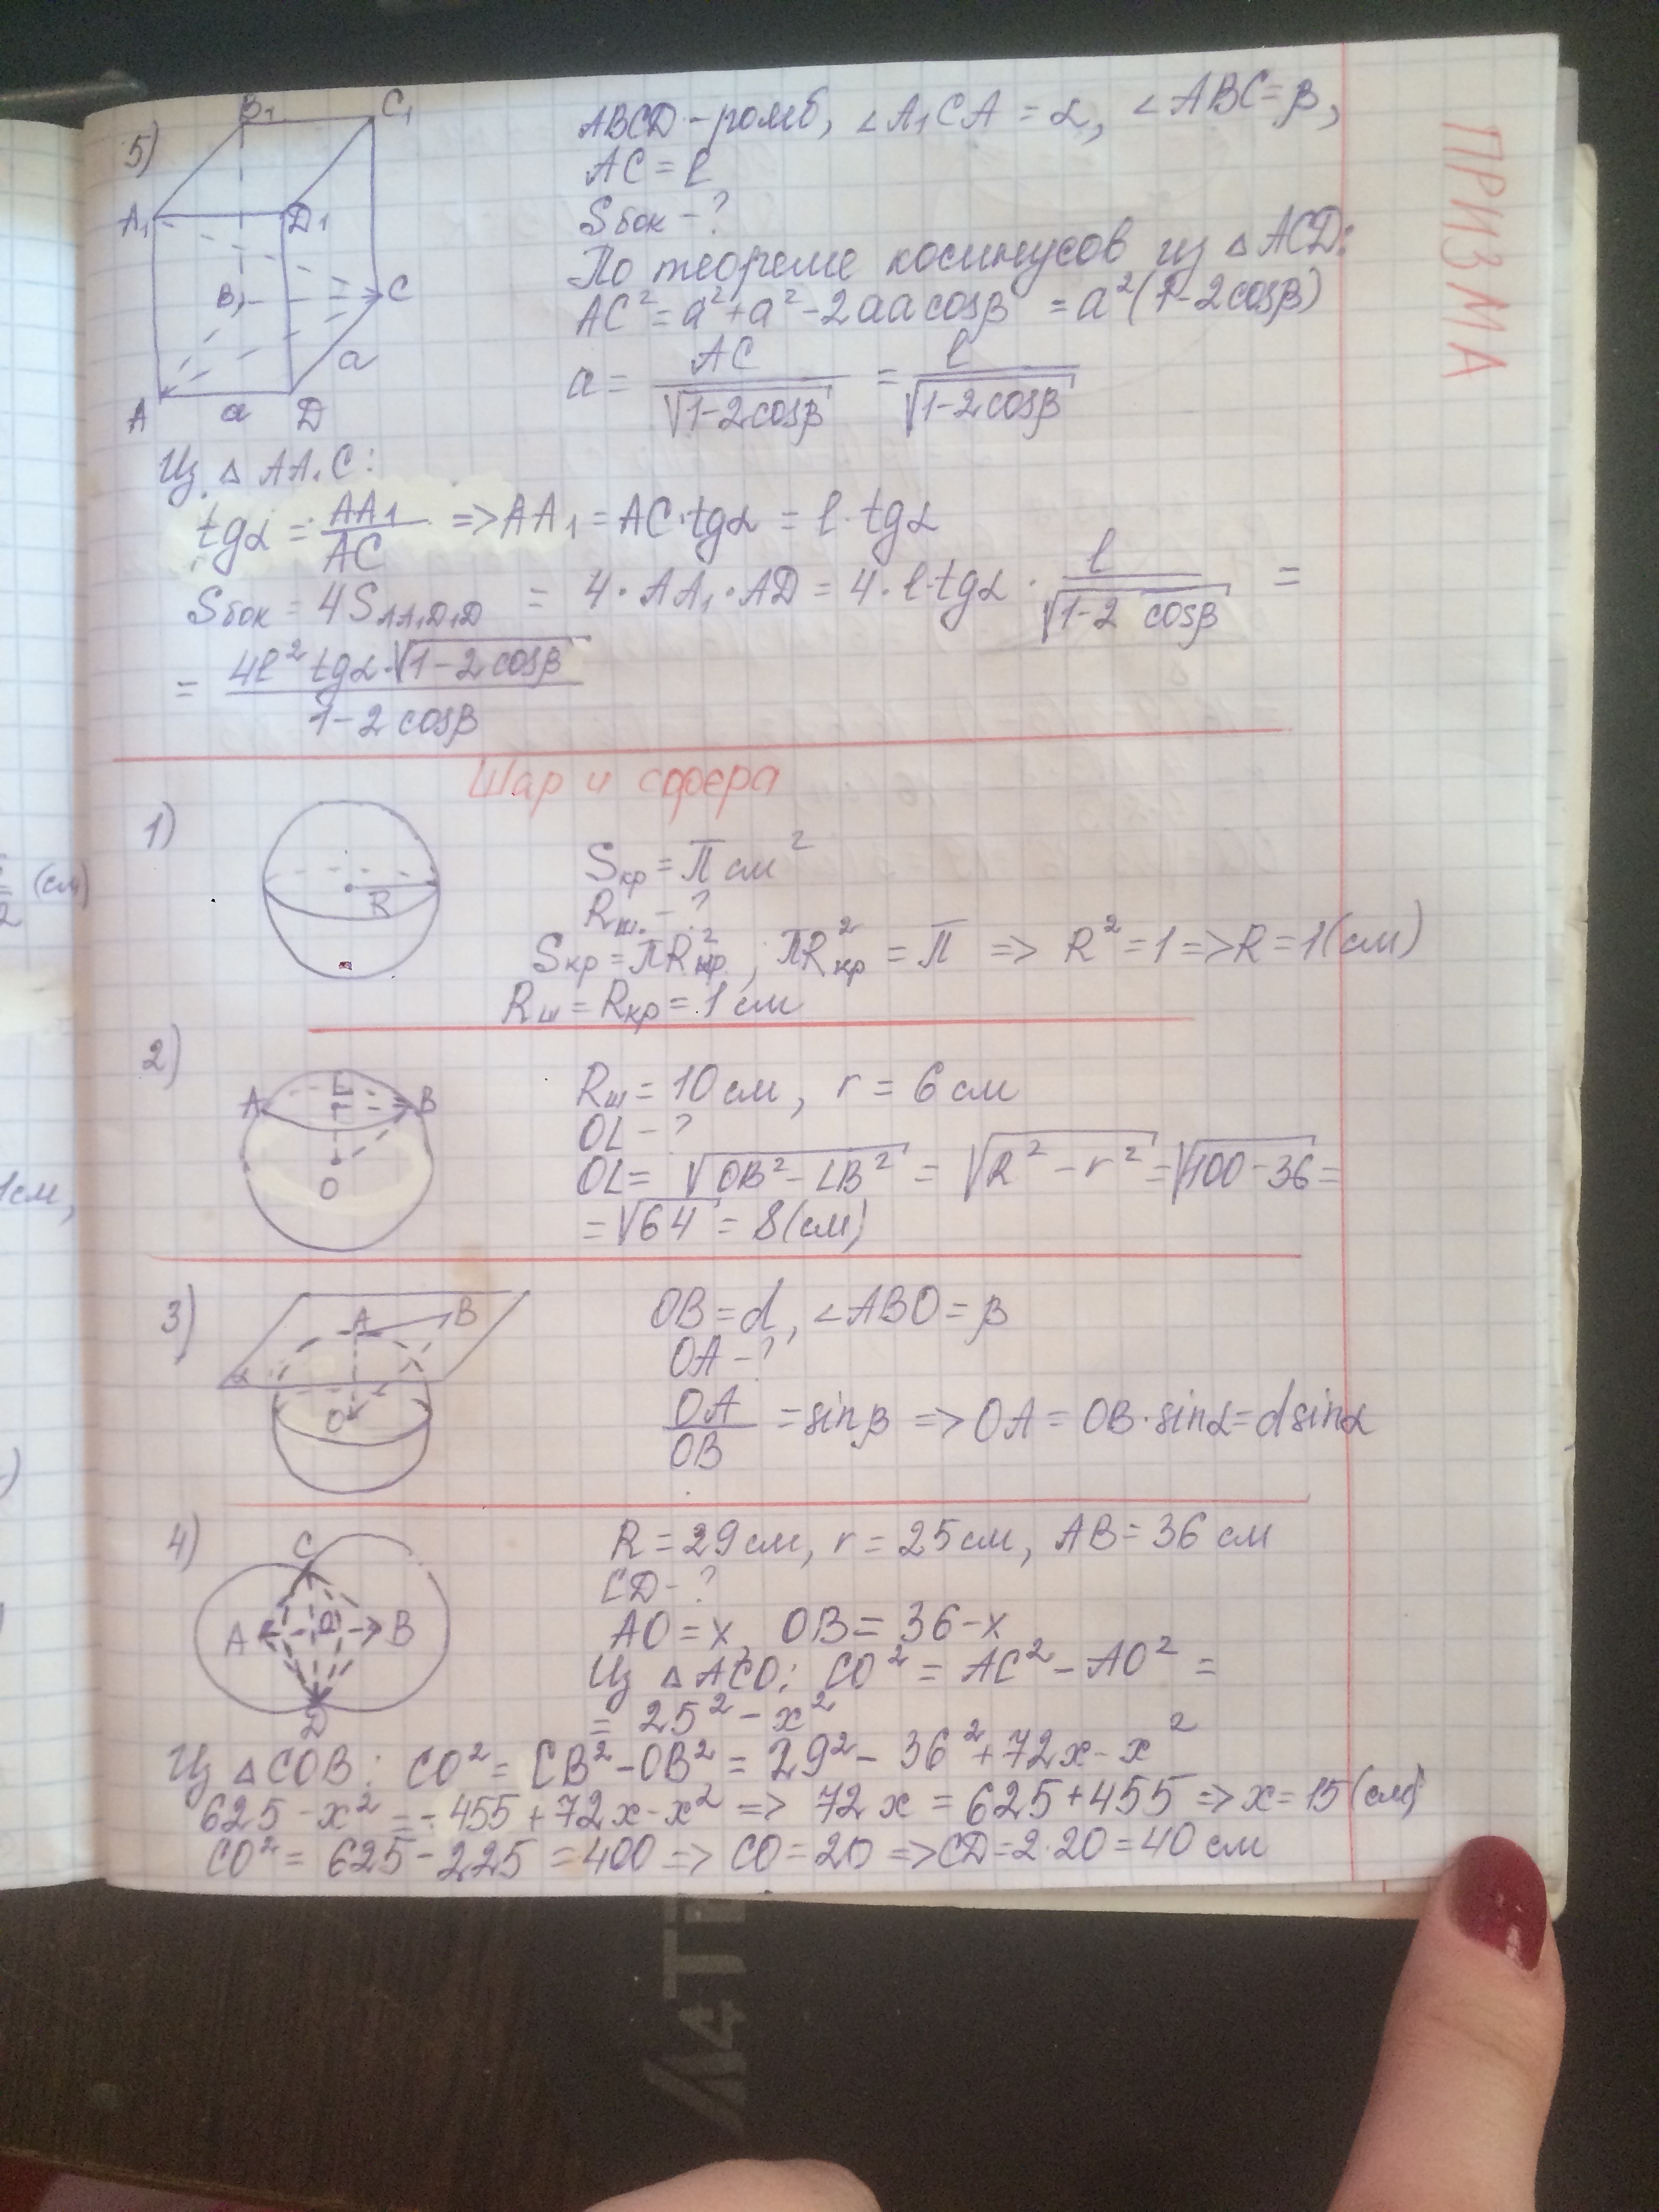 ПРИЗМА
5)
B₁ C₁
A₁ D₁
B C
a
A a D
ABCD - ромб, ∠A₁CA = α, ∠ABC = β,
AC = l
Sбок - ?
По теореме косинусов из △ACD:
AC² = a² + a² - 2aa cosβ = a²(1 - 2cosβ)
a = AC/√(1-2cosβ) = l/√(1-2cosβ)
Из △AA₁C:
tgα = AA₁/AC => AA₁ = AC·tgα = l·tgα
Sбок = 4S AA₁D₁D = 4·AA₁·AD = 4·l·tgα · l/√(1-2cosβ) =
= 4l² tgα·√(1-2cosβ)/(1-2cosβ)
Шар и сфера
1)
R
Sкр = π см²
Rш. - ?
Sкр = πR²кр, πR²кр = π => R² = 1 => R = 1(см)
Rш = Rкр = 1 см
2)
A L B
O
Rш = 10 см, r = 6 см
OL - ?
OL = √(OB² - LB²) = √(R² - r²) = √(100 - 36) =
= √64 = 8(см)
3)
A B
α
O
OB = d, ∠ABO = β
OA - ?
OA/OB = sinβ => OA = OB·sinα = d sinα
4)
C
A O B
D
R = 29 см, r = 25 см, AB = 36 см
CD - ?
AO = x, OB = 36 - x
Из △ACO: CO² = AC² - AO² =
= 25² - x²
Из △COB: CO² = CB² - OB² = 29² - 36² + 72x - x²
625 - x² = -455 + 72x - x² => 72x = 625 + 455 => x = 15(см)
CO² = 625 - 225 = 400 => CO = 20 => CD = 2·20 = 40 см
(см)
2
1см,